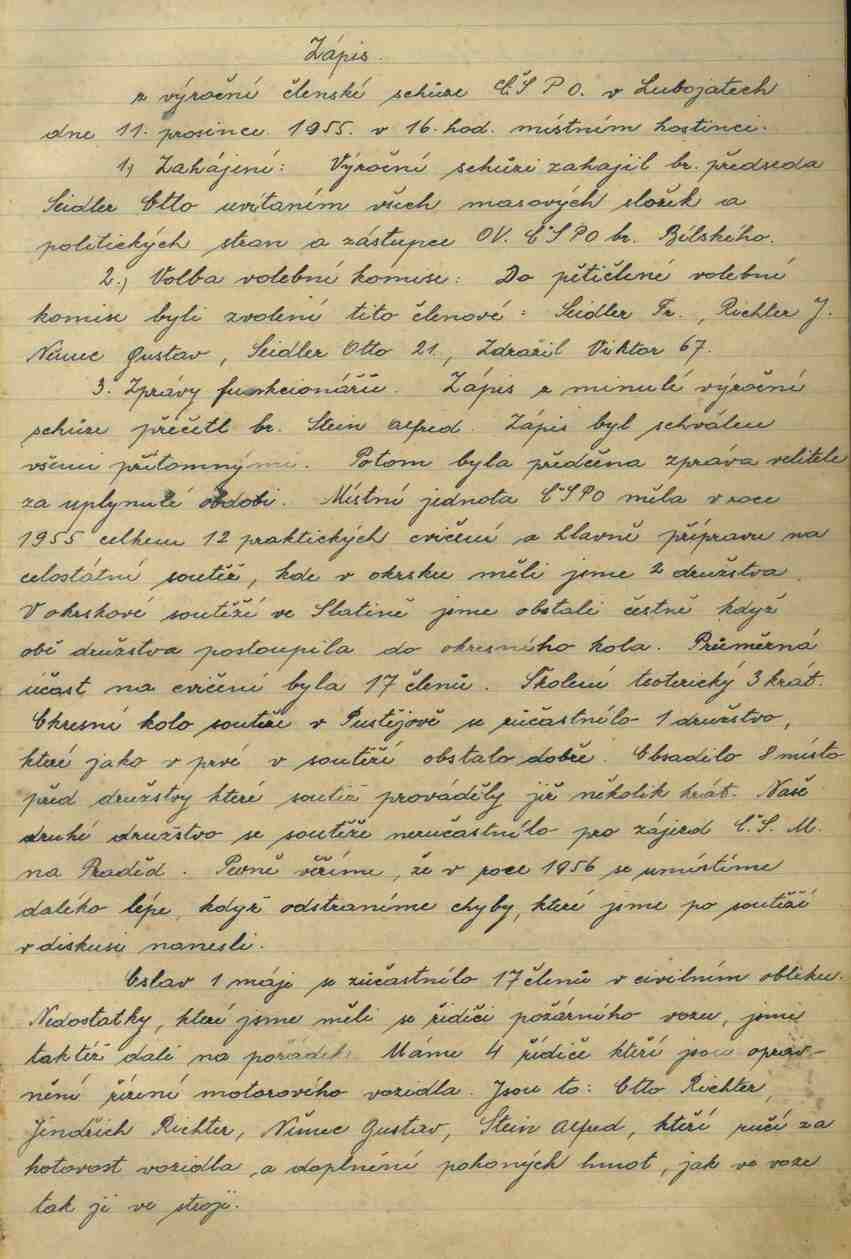 Zápis.
z výroční členské schůze ČSPO. v Lubojatech
dne 11. prosince 1955. v 16. hod. místním hostinci.
1) Zahájení: Výroční schůzi zahajil br. předseda
Seidler Otto uvítaním všech masových složek a
politických stran a zástupce OV. ČSPO br. Bílského.
2.) Volba volební komise: Do pětičlené volební
komise byli zvolení tito členové: Seidler Fr., Richler J.
Němec Gustav, Seidler Otto 21., Zdražil Viktor 67.
3. Zprávy funkcionářů. Zápis z minulé výroční
schůze přečetl br. Stein Alfred. Zápis byl schválen
všemi přítomnými. Potom byla předčena zpráva velitele
za uplynulé obdobi. Místní jednota ČSPO měla v roce
1955 celkem 12 praktických cvičení a hlavně přípravu na
celostátní soutěž, kde v okrsku měli jsme 2 družstva.
V okrskové soutěží ve Slatině jsme obstali čestně když
obě družstva postoupila do okresního kola. Průměrná
účast na cvičení byla 17 členů. Školení teoterický 3 krát.
Okresní kolo soutěže v Pustějově se zúčastnílo 1 družstvo,
které jako v prvé v soutěží obstalo dobře. Obsadilo 8 místo
před družstvy které soutěž prováděly již několik krát. Naše
druhé družstvo se soutěže nezučastnílo pro zájezd Č.S.M.
na Praděd. Pevně věříme, že v roce 1956 se umístíme
daleko lépe, když odstraníme chyby, které jsme po soutěží
v diskusi nanesli.
Oslav 1 máje se zúčastnílo 17 členů v civilním obleku.
Nedostatky, které jsme měli se řidiči požárního vozu, jsme
taktéž dali na pořádek. Máme 4 řídiče kteří jsou opráv-
nění řízení motorového vozidla. Jsou to: Otto Richter,
Jindřich Richter, Němec Gustav, Stein Alfred, kteří ručí za
hotovost vozidla a doplnění pohoných hmot, jak ve voze
tak ji ve stroji.